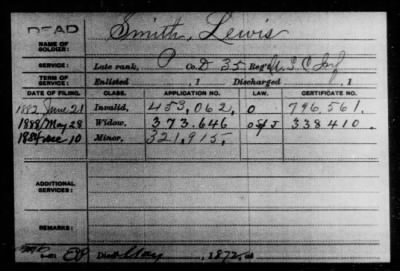 DEAD
Smith, Lewis
NAME OF SOLDIER:
SERVICE: Late rank, P Co. D 35 Reg't U.S.C. Inf
TERM OF SERVICE: Enlisted , 1 Discharged , 1
DATE OF FILING. CLASS. APPLICATION NO. LAW. CERTIFICATE NO.
1882, June 21 Invalid, 453,062, O 796,561.
1888, May 28 Widow, 373.646 338410.
10 Minor, 321,915,
ADDITIONAL SERVICES:
REMARKS:
Died May , 1872, at